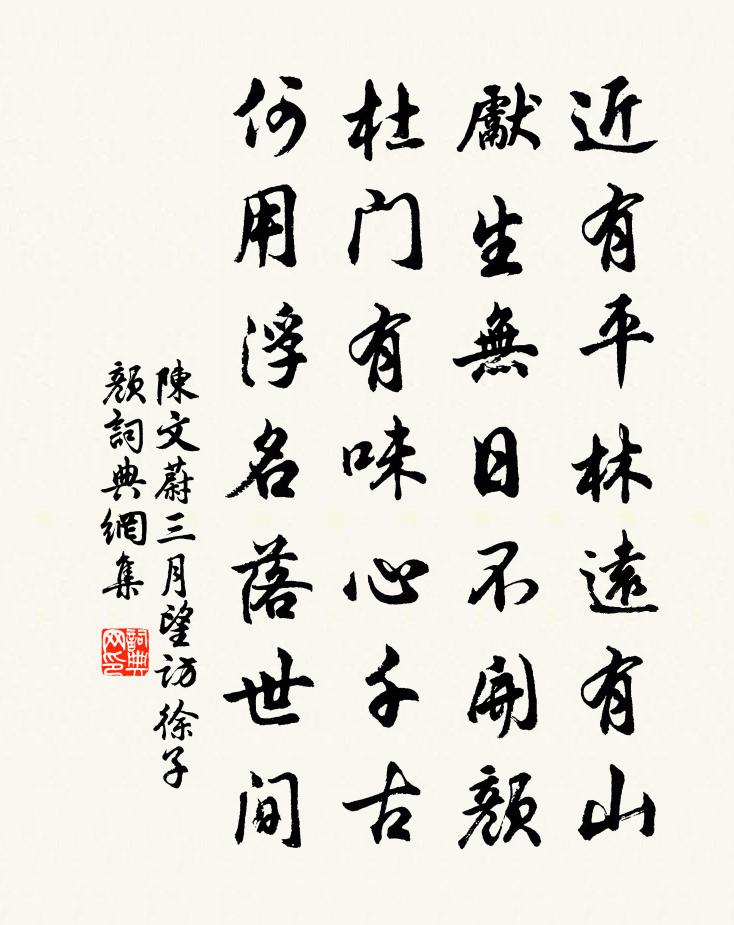 近有平林遠有山
獻生無日不開顏
杜门有味心千古
何用浮名落世间
陳文蔚三月望訪徐子
顏詞典網集
詞典网印